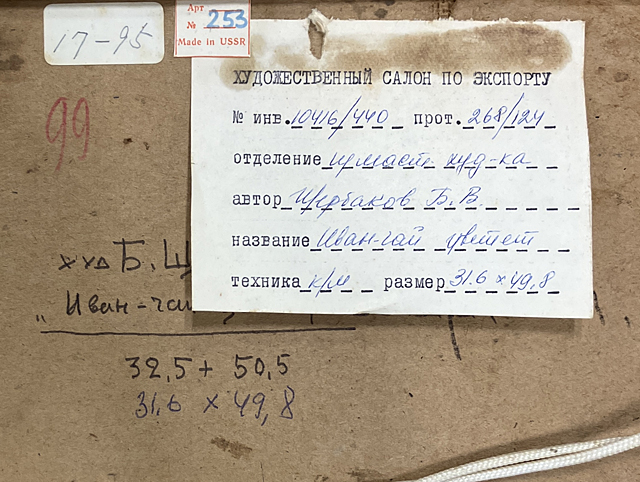 17-95
Арт
№ 253
Made in USSR
99
ХУДОЖЕСТВЕННЫЙ САЛОН ПО ЭКСПОРТУ
№ инв. 10416/440 прот. 268/124
отделение худ-ка
автор Щербаков Б.В.
название Иван-чай цветет
техника к/м размер 31.6 × 49,8
худ Б. Щ
„Иван-чай
32,5 + 50,5
31,6 × 49,8